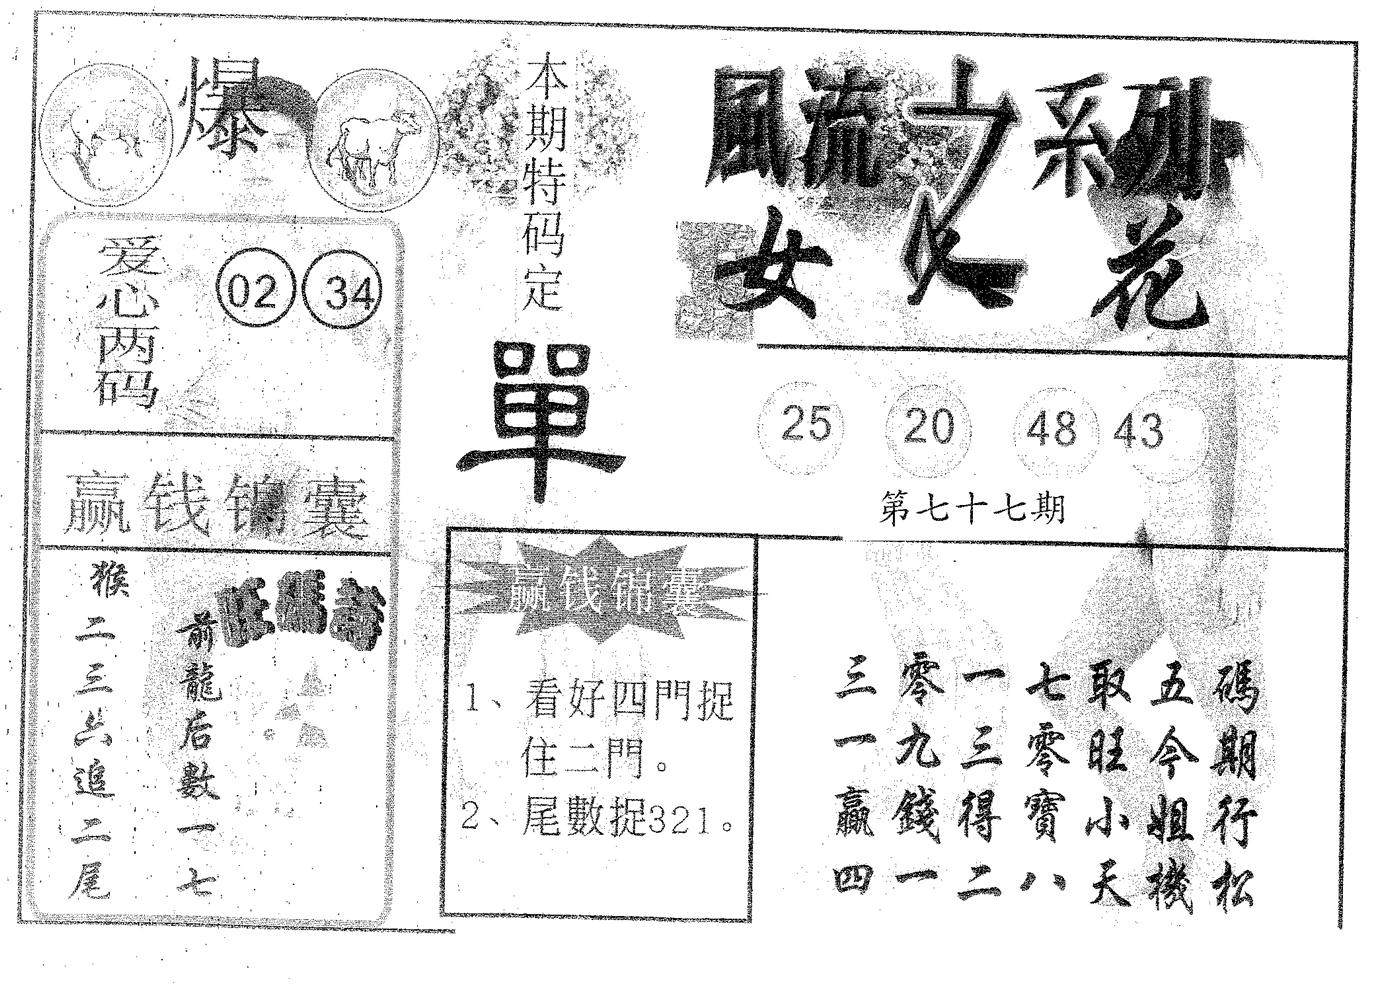 爆
爱心两码
02 34
赢钱锦囊
旺碼詩
前龍后數一七
猴二三六追二尾
本期特码定
單
風流之系列
女人花
25 20 48 43
第七十七期
赢钱锦囊
1、看好四門捉
住二門。
2、尾數捉321。
三零一七取五碼
一九三零旺今期
贏錢得寶小姐行
四一二八天機松